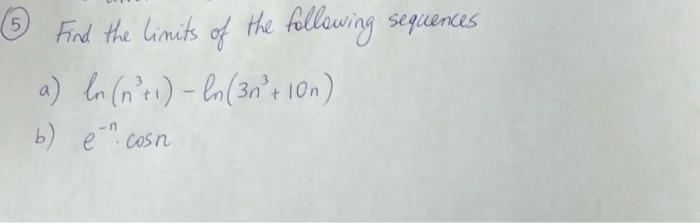 5 Find the limits of the following sequences
a) ln(n³+1) - ln(3n³+10n)
b) e⁻ⁿ · cosn